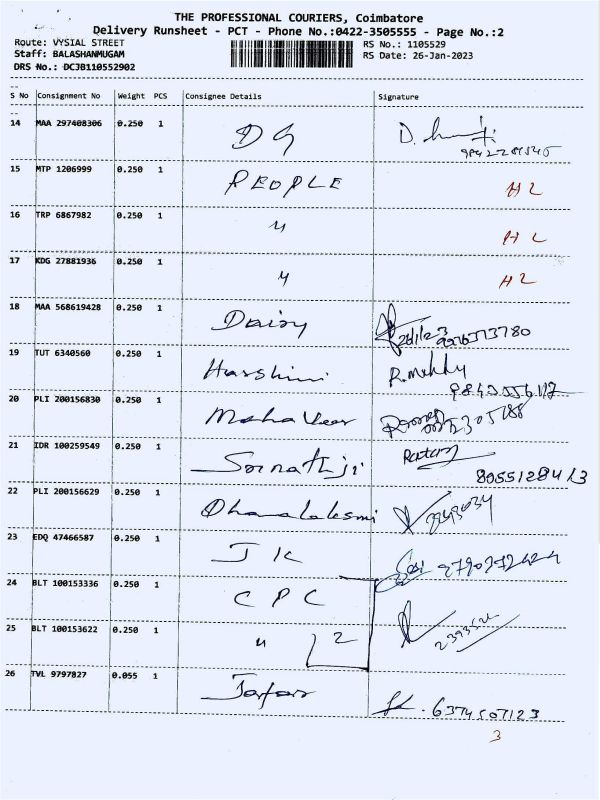 THE PROFESSIONAL COURIERS, Coimbatore
Delivery Runsheet - PCT - Phone No.:0422-3505555 - Page No.:2
Route: VYSIAL STREET
Staff: BALASHANMUGAM
DRS No.: DCJB110552902
RS No.: 1105529
RS Date: 26-Jan-2023
S No Consignment No Weight PCS Consignee Details Signature
14 MAA 297408306 0.250 1
15 MTP 1206999 0.250 1 PEOPLE H2
16 TRP 6867982 0.250 1 " H2
17 KDG 27881936 0.250 1 " H2
18 MAA 568619428 0.250 1 Daisy
19 TUT 6340560 0.250 1 Harshini
20 PLI 200156830 0.250 1 MahaVeer
21 IDR 100259549 0.250 1 Srinathji
22 PLI 200156629 0.250 1 Dhanalaksmi
23 EDQ 47466587 0.250 1 JK
24 BLT 100153336 0.250 1 CPC
25 BLT 100153622 0.250 1 " 2
26 TVL 9797827 0.055 1 Jafar 6374507123
3